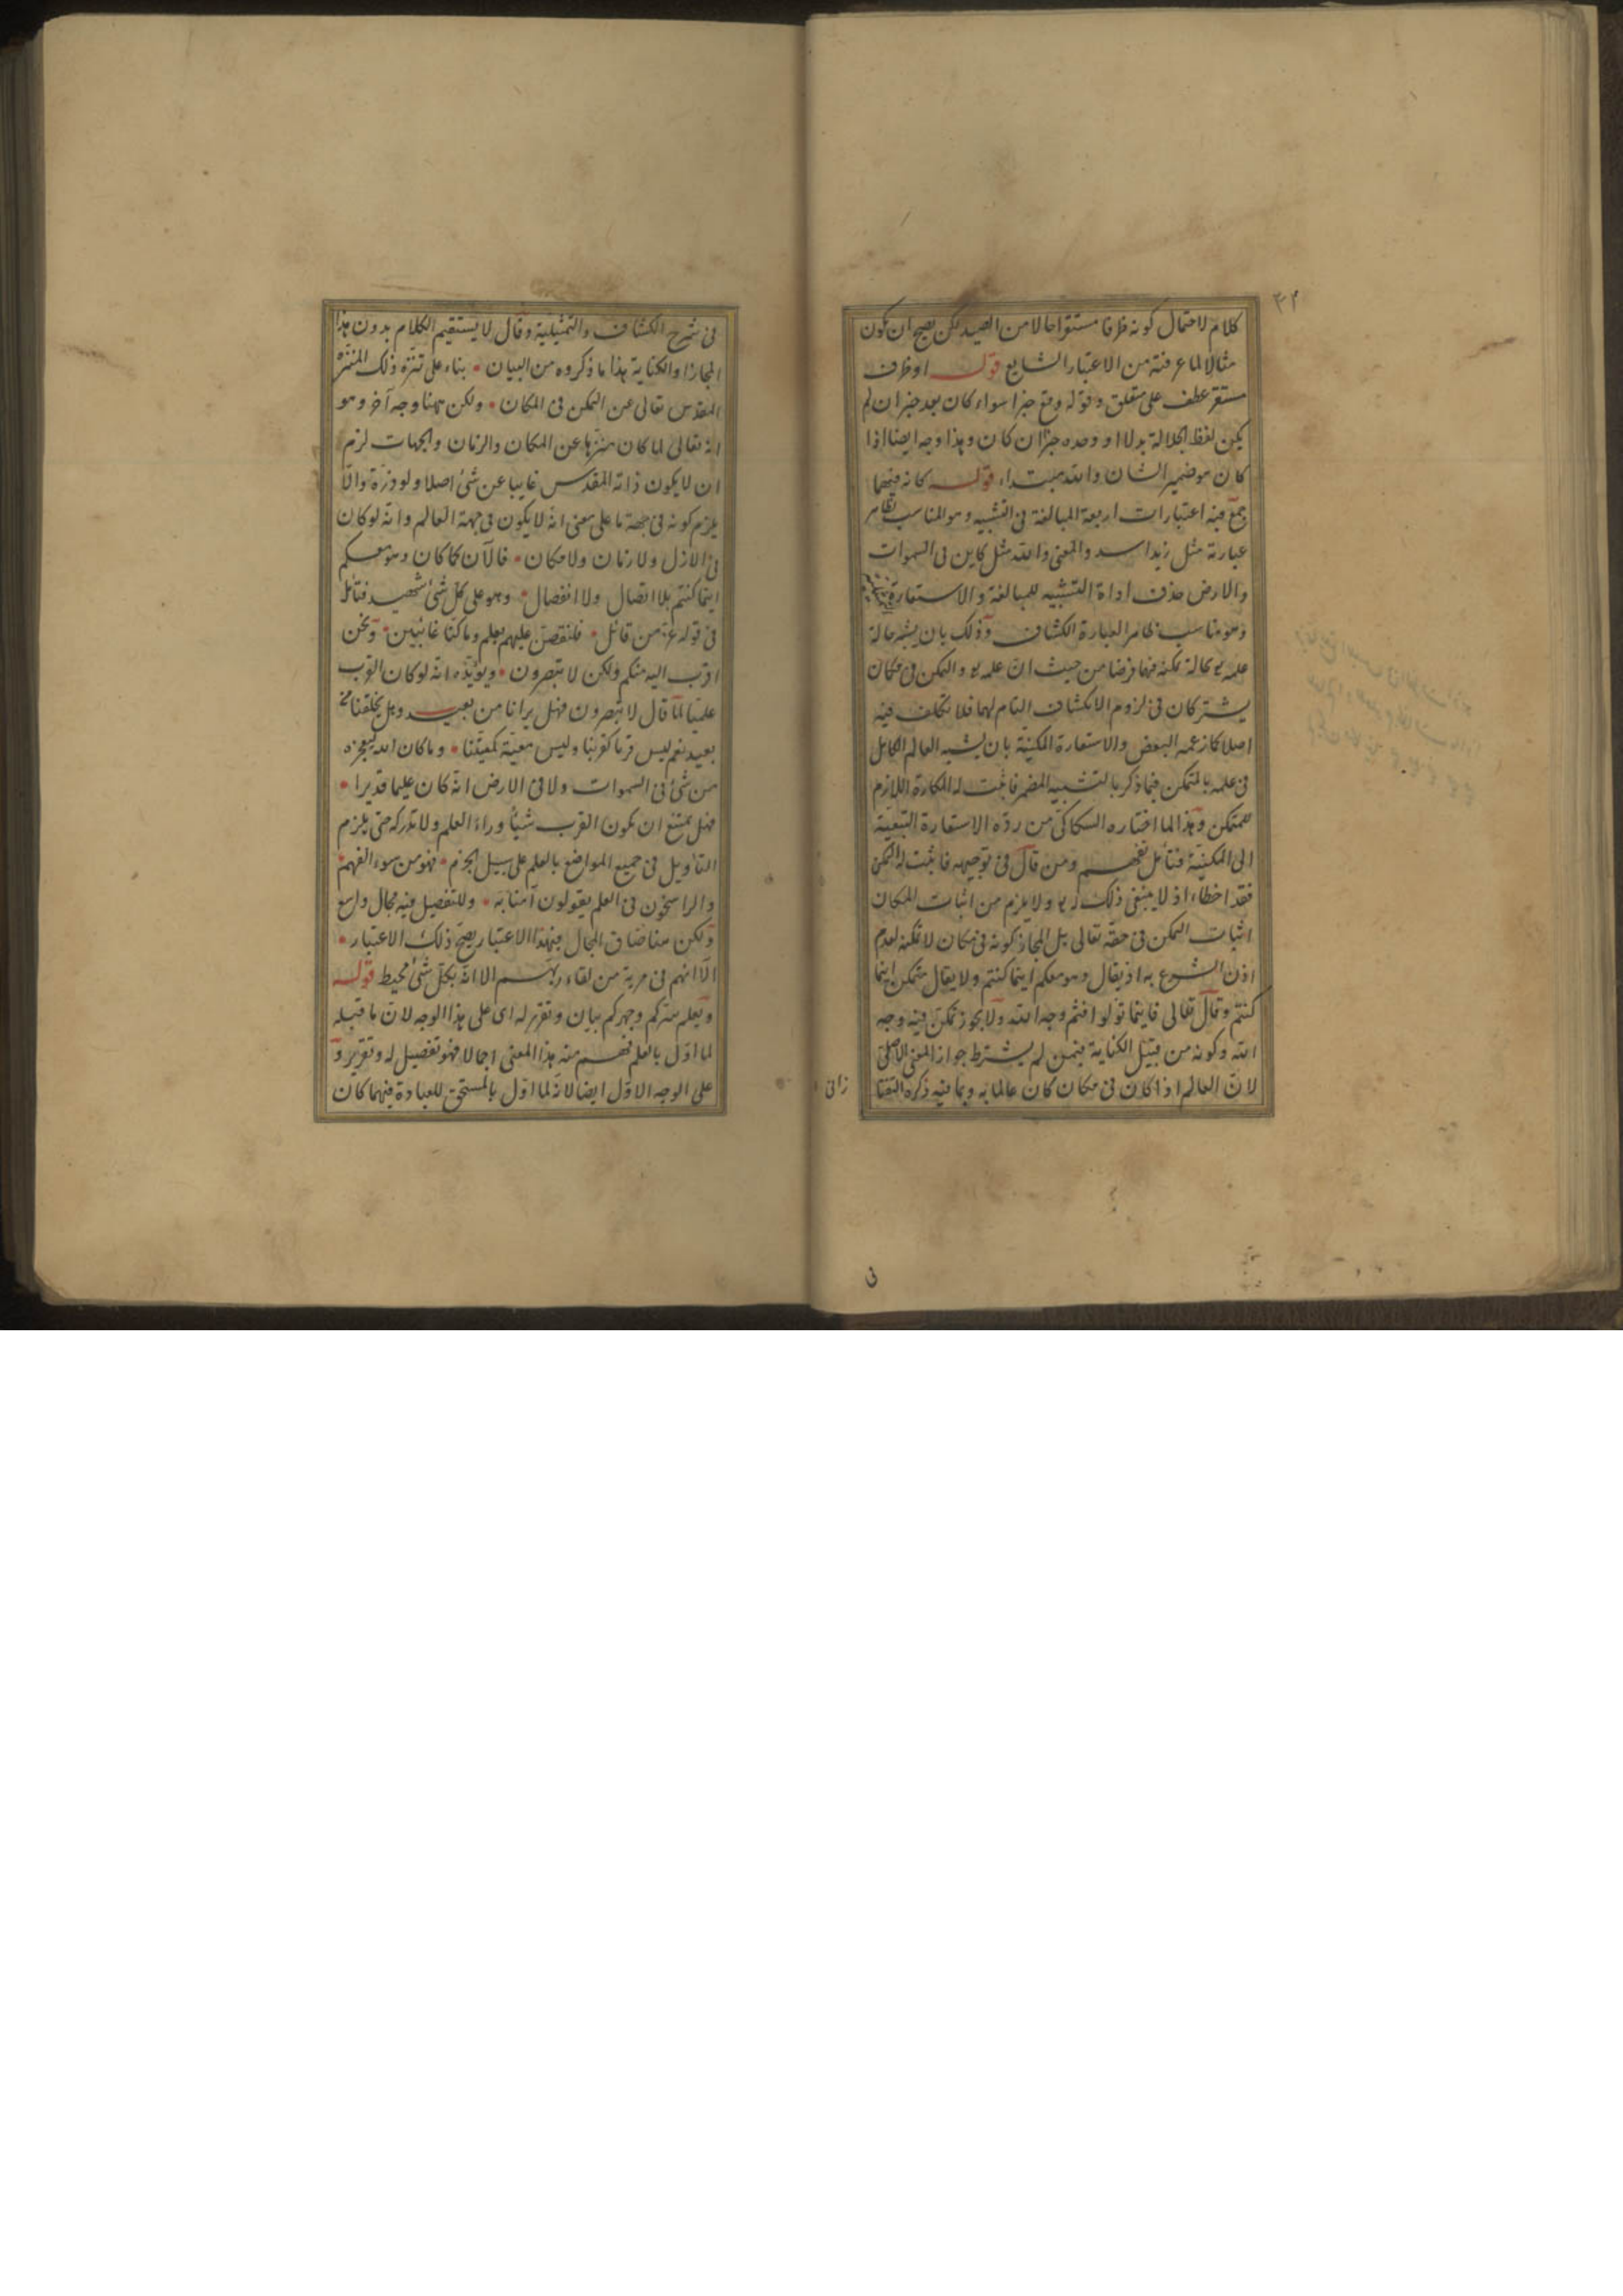 ٣٤
كلام لاحتمال كونه ظرفا مستقرا حالا من الصيد لكن يصح ان يكون
مثالا لما عرفته من الاعتبار الشايع قوله او ظرف
مستقر عطف على متعلق وقوله وقع خبرا سواء كان بعد خبر ان لم
يكن لفظ الجلالة بدلا او وحده خبرا ان كان وهذا وجه ايضا اذا
كان هو ضمير الشان والله مبتداء قوله كانه فيهما
جمع فيه اعتبارات اربعة المبالغة فى التشبيه وهو المناسب لظاهر
عبارته مثل زيد اسد والمعنى والله مثل كاين فى السموات
والارض حذف اداة التشبيه للمبالغة والاستعارة
وهو مناسب لظاهر العبارة الكشاف وذلك بان يشبه حالة
علمه بحالة تمكنه فيها فرضا من حيث ان علمه والتمكن فى مكان
يشتركان فى لزوم الانكشاف التام لهما فلا تكلف فيه
اصلا كما زعمه البعض والاستعارة المكنية بان يشبه العالم الكامل
فى علمه بالمتمكن فيما ذكر بالتشبيه المضمر فاثبت له المكان اللازم
للمتمكن وهذا لما اختاره السكاكى من رده الاستعارة التبعية
الى المكنية فتأمل تفهم ومن قال فى توجيهه فاثبت له التمكن
فقد اخطاء اذ لا ينبغى ذلك له ولا يلزم من اثبات المكان
اثبات التمكن فى حقه تعالى بل المجاز كونه فى مكان لا تمكنه لعدم
اذن الشرع به اذ يقال وهو معكم اينما كنتم ولا يقال متمكن اينما
كنتم وقال تعالى فاينما تولوا فثم وجه الله ولا يجوز تمكن فيه وجه
الله وكونه من قبيل الكناية فيمن لم يشترط جواز المعنى الاصلى
لان العالم اذا كان فى مكان كان عالما به وبما فيه ذكره التفتا
زانى
فى شرح الكشاف والتمثيلية وقال لا يستقيم الكلام بدون هذا
المجاز او الكناية هذا ما ذكروه من البيان • بناء على تنزه ذلك المنزه
المقدس تعالى عن التمكن فى المكان • ولكن ههنا وجه آخر وهو
انه تعالى لما كان منزها عن المكان والزمان والجهات لزم
ان لا يكون ذاته المقدس غايبا عن شئ اصلا ولو ذرة والا
يلزم كونه فى جهة ما على معنى انه لا يكون فى جهة العالم وانه لو كان
فى الازل ولا زمان ولا مكان • فالآن كما كان وهو معكم
اينما كنتم بلا اتصال ولا انفصال • وهو على كل شئ شهيد فتأمل
فى قوله عز من قائل • فلنقصن عليهم بعلم وما كنا غائبين • ونحن
اقرب اليه منكم ولكن لا تبصرون • ويؤيده انه لو كان القرب
علميا لما قال لا تبصرون فهل يرانا من بعيد وهل يخلقنا من
بعيد نعم ليس قربا كقربنا وليس معية كمعيتنا • وما كان الله ليعجزه
من شئ فى السموات ولا فى الارض انه كان عليما قديرا •
فهل يمتنع ان يكون القرب شيئا وراء العلم ولا ندركه حتى يلزم
التأويل فى جميع المواضع بالعلم على سبيل الجزم • فهو من سوء الفهم •
والراسخون فى العلم يقولون آمنا به • وللتفصيل فيه مجال واسع
ولكن هنا ضاق المجال فبهذا الاعتبار يصح ذلك الاعتبار •
الا انهم فى مرية من لقاء ربهم الا انه بكل شئ محيط قوله
ويعلم سركم وجهركم بيان وتقرير له اى على هذا الوجه لان ما قبله
لما اول بالعلم فهم منه هذا المعنى اجمالا فهو تفصيل له وتقرير و
على الوجه الاول ايضا لانه لما اول بالمستحق للعبادة فيهما كان